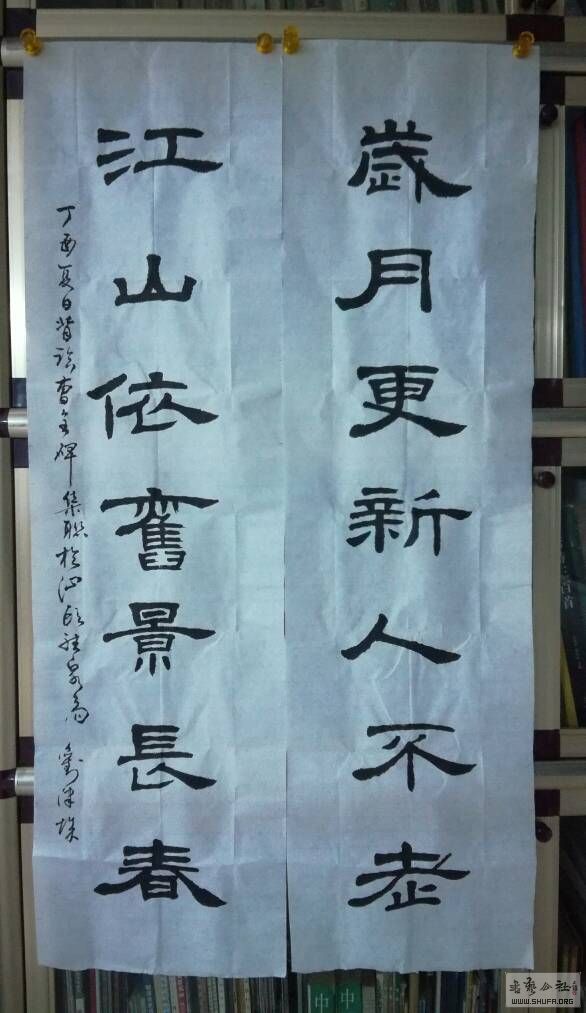 歲月更新人不老
江山依舊景長春
丁酉夏日背臨曹全碑集聯於
書藝公社
WWW.SHUFA.ORG
中
中